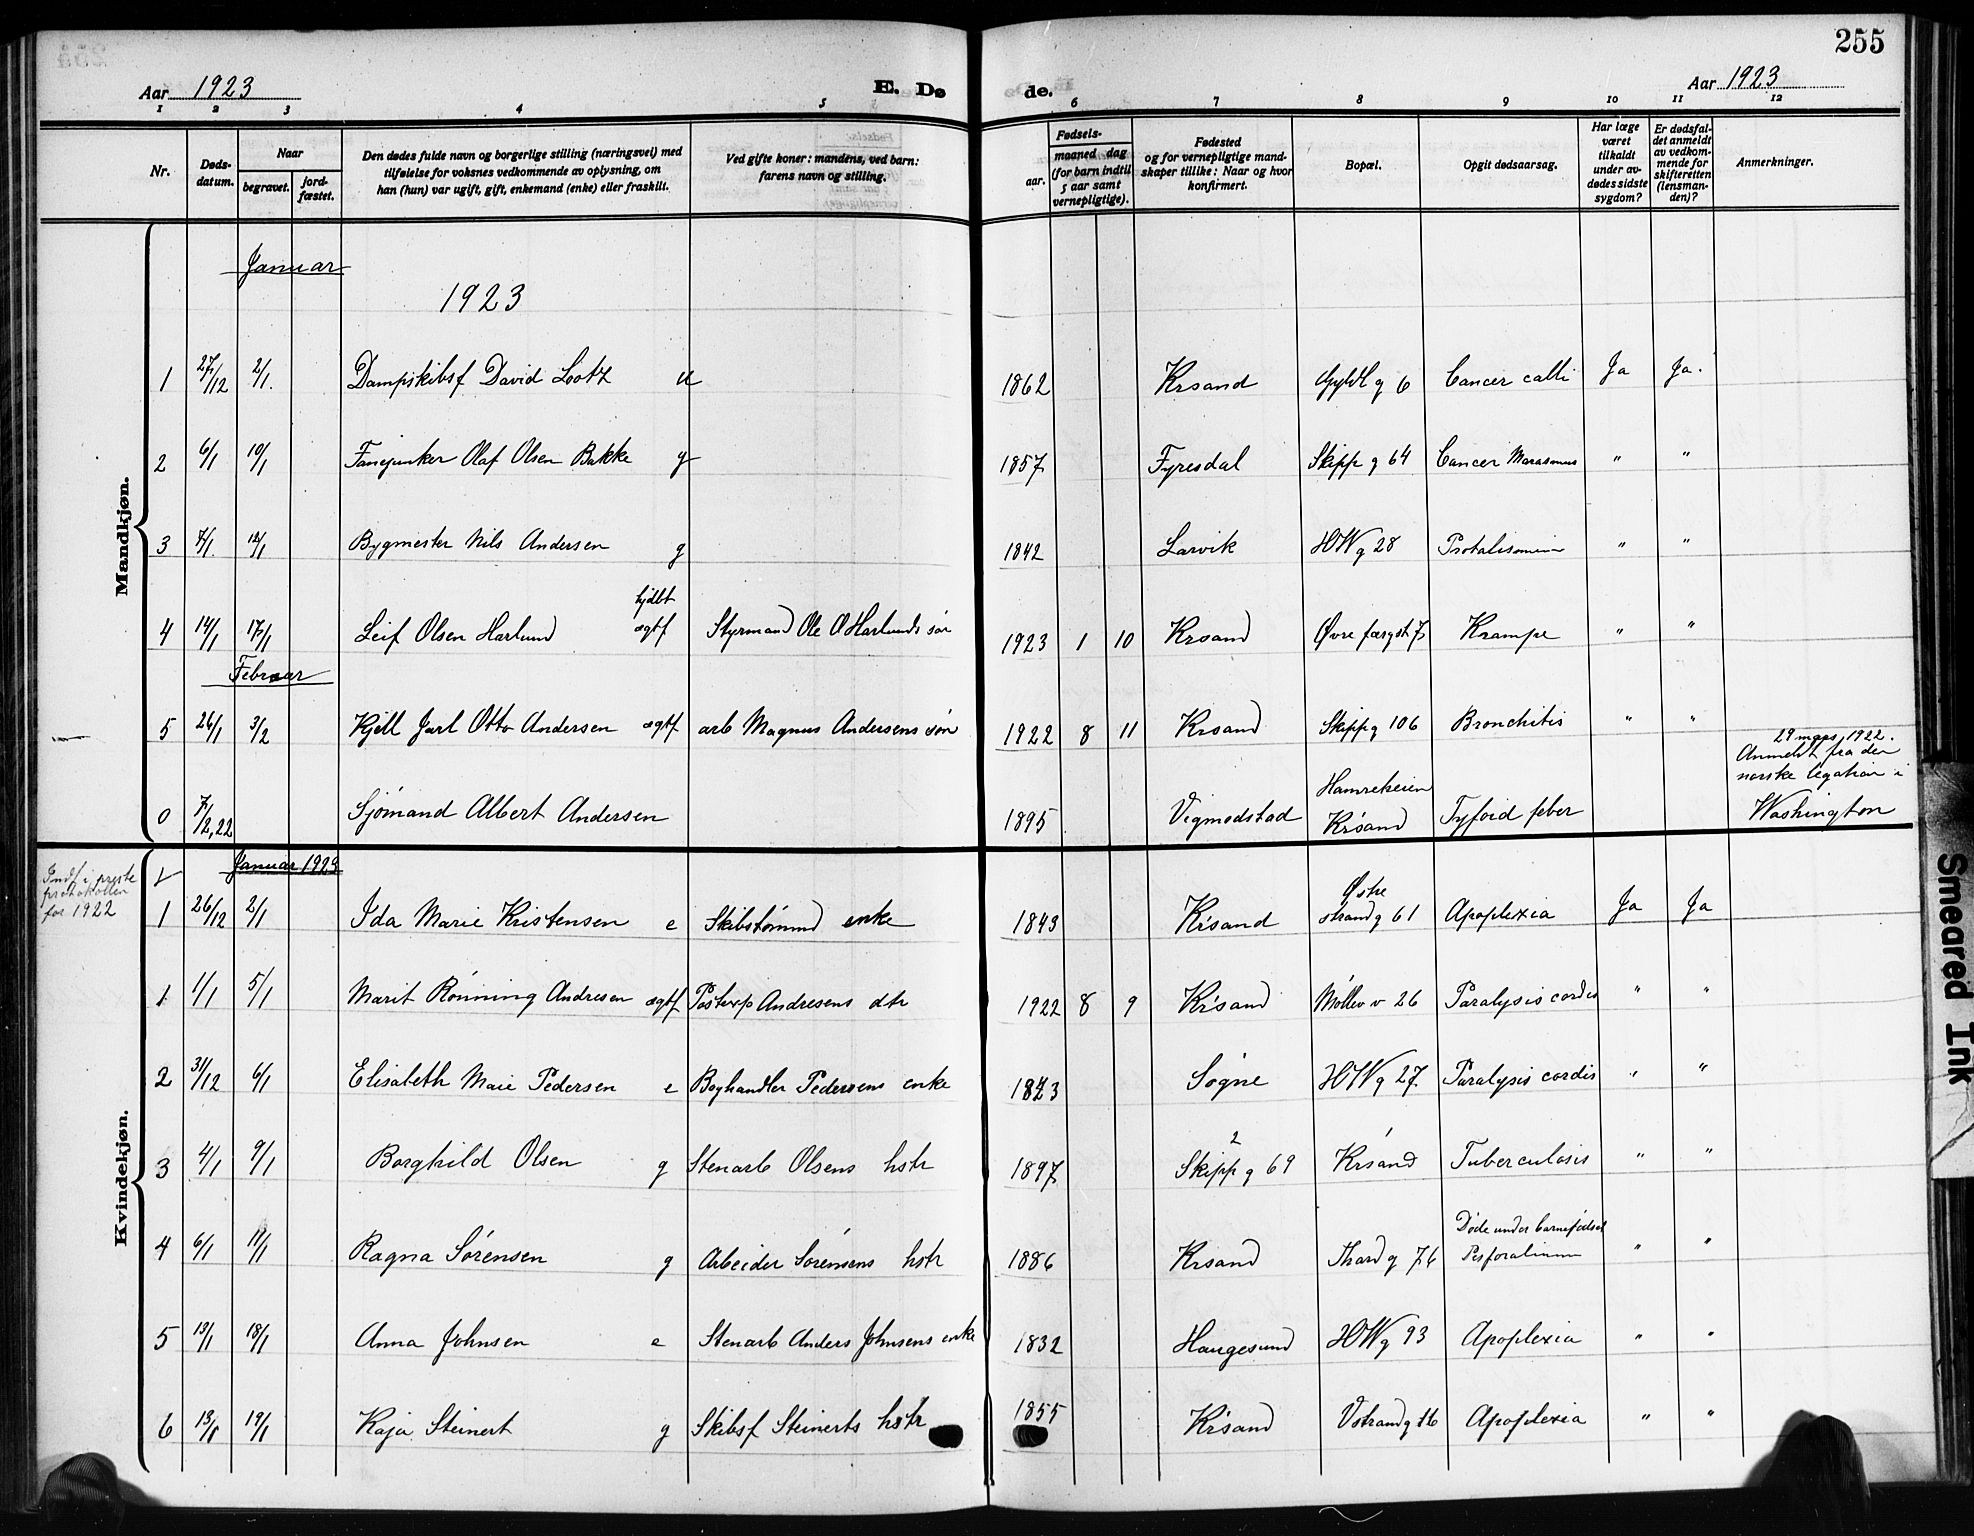 255
Aar 1923
E. Dø
de.
Aar 1923
1 2 3 4 5 6 7 8 9 10 11 12
Nr.
Døds-
datum.
Naar
begravet.
jord-
fæstet.
Den dødes fulde navn og borgerlige stilling (næringsvei) med
tilføielse for voksnes vedkommende av oplysning, om
han (hun) var ugift, gift, enkemand (enke) eller fraskilt.
Ved gifte koner: mandens, ved barn:
farens navn og stilling.
Fødsels-
aar.
maaned dag
(for barn indtil
5 aar samt
vernepligtige).
Fødested
og for vernepligtige mand-
skaper tillike: Naar og hvor
konfirmert.
Bopæl.
Opgit dødsaarsag.
Har læge
været
tilkaldt
under av-
dødes sidste
sygdom?
Er dødsfal-
det anmeldt
av vedkom-
mende for
skifteretten
(lensman-
den)?
Anmerkninger.
Mandkjøn.
Januar
1923
1 27/12 2/1. Dampskibsf David Lootz u 1862 Krsand Gyldl g 6 Cancer colli Ja Ja.
2 6/1 10/1 Fanejunker Olaf Olsen Bakke g 1857 Fyresdal Skipp g 64 Cancer Marasmus " "
3 7/1. 12/1 Bygmester Nils Andersen g 1842 Larvik HW g 28 " "
hjdbt
4 14/1 17/1 Leif Olsen Harlund ægtf Styrmand Ole O Harlunds søn 1923 1 10 Krsand Øvre 7 Krampe " "
Februar
5 26/1 3/2 Kjell Jarl Otto Andersen ægtf arb Magnus Andersens søn 1922 8 11 Krsand Skipp g 106 Bronchitis " "
29 mars 1922.
Anmeldt fra den
norske legation i
Washington
0 7/2, 22 Sjömand Albert Andersen 1895 Vigmodstad Hamreheien
Krsand Tyfoid feber
Kvindekjøn.
Indf i preste
protokollen
for 1922
Januar 1923
1 26/12 2/1 Ida Marie Kristensen e Skibstømmd enke 1843 Krsand Østre
strand g 61 Apoplexia Ja Ja
1 1/1 5/1 Marit Rönning Andresen ægtf Postexp Andresens dtr 1922 8 9 Krsand Møllev v 26 Paralysis cordis " "
2 31/12 6/1 Elisabeth Marie Pedersen e Boghandler Pedersens enke 1843 Søgne HW g 27. Paralysis cordis " "
3 4/1 9/1 Borghild Olsen g Stenarb Olsens hstr 1897 2
Skipp g 69 Krsand Tuberculosis " "
4 6/1 11/1 Ragna Sørensen g Arbeider Sørensens hstr 1886 Krsand Thard g 76 Døde under barnefødsel
" "
5 13/1 18/1 Anna Johnsen e Stenarb Anders Johnsens enke 1832 Haugesund HW g 93 Apoplexia " "
6 13/1 19/1 Kaja Steinert g Skibsf Steinerts hstr 1855 Krsand Vstrand g 16 Apoplexia " "
Smeared Ink